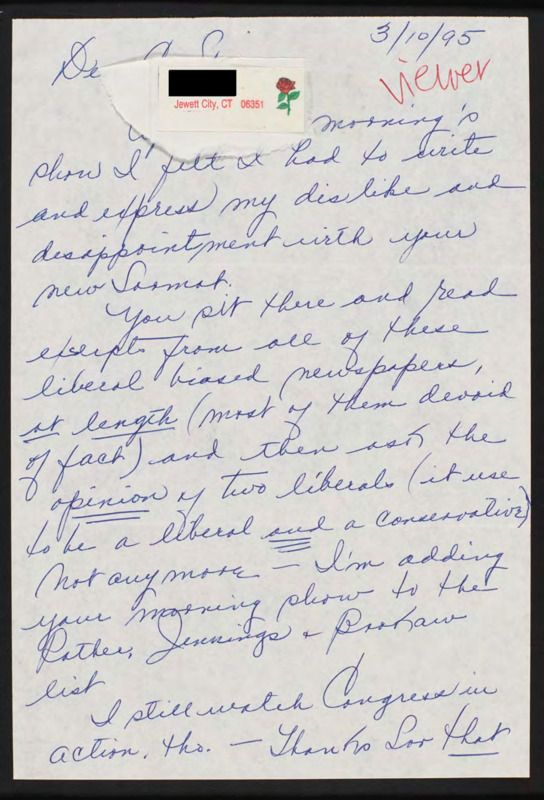 3/10/95
viewer
De
Jewett City, CT 06351
morning's
show I felt I had to write
and express my dislike and
disappointment with your
new format.
You sit there and read
exerpts from all of these
liberal biased newspapers,
at length (most of them devoid
of fact) and then ask the
opinion of two liberals (it use
to be a liberal and a conservative)
Not anymore – I'm adding
your morning show to the
Rather, Jennings + Brokaw
list
I still watch Congress in
action, tho. – Thanks for that